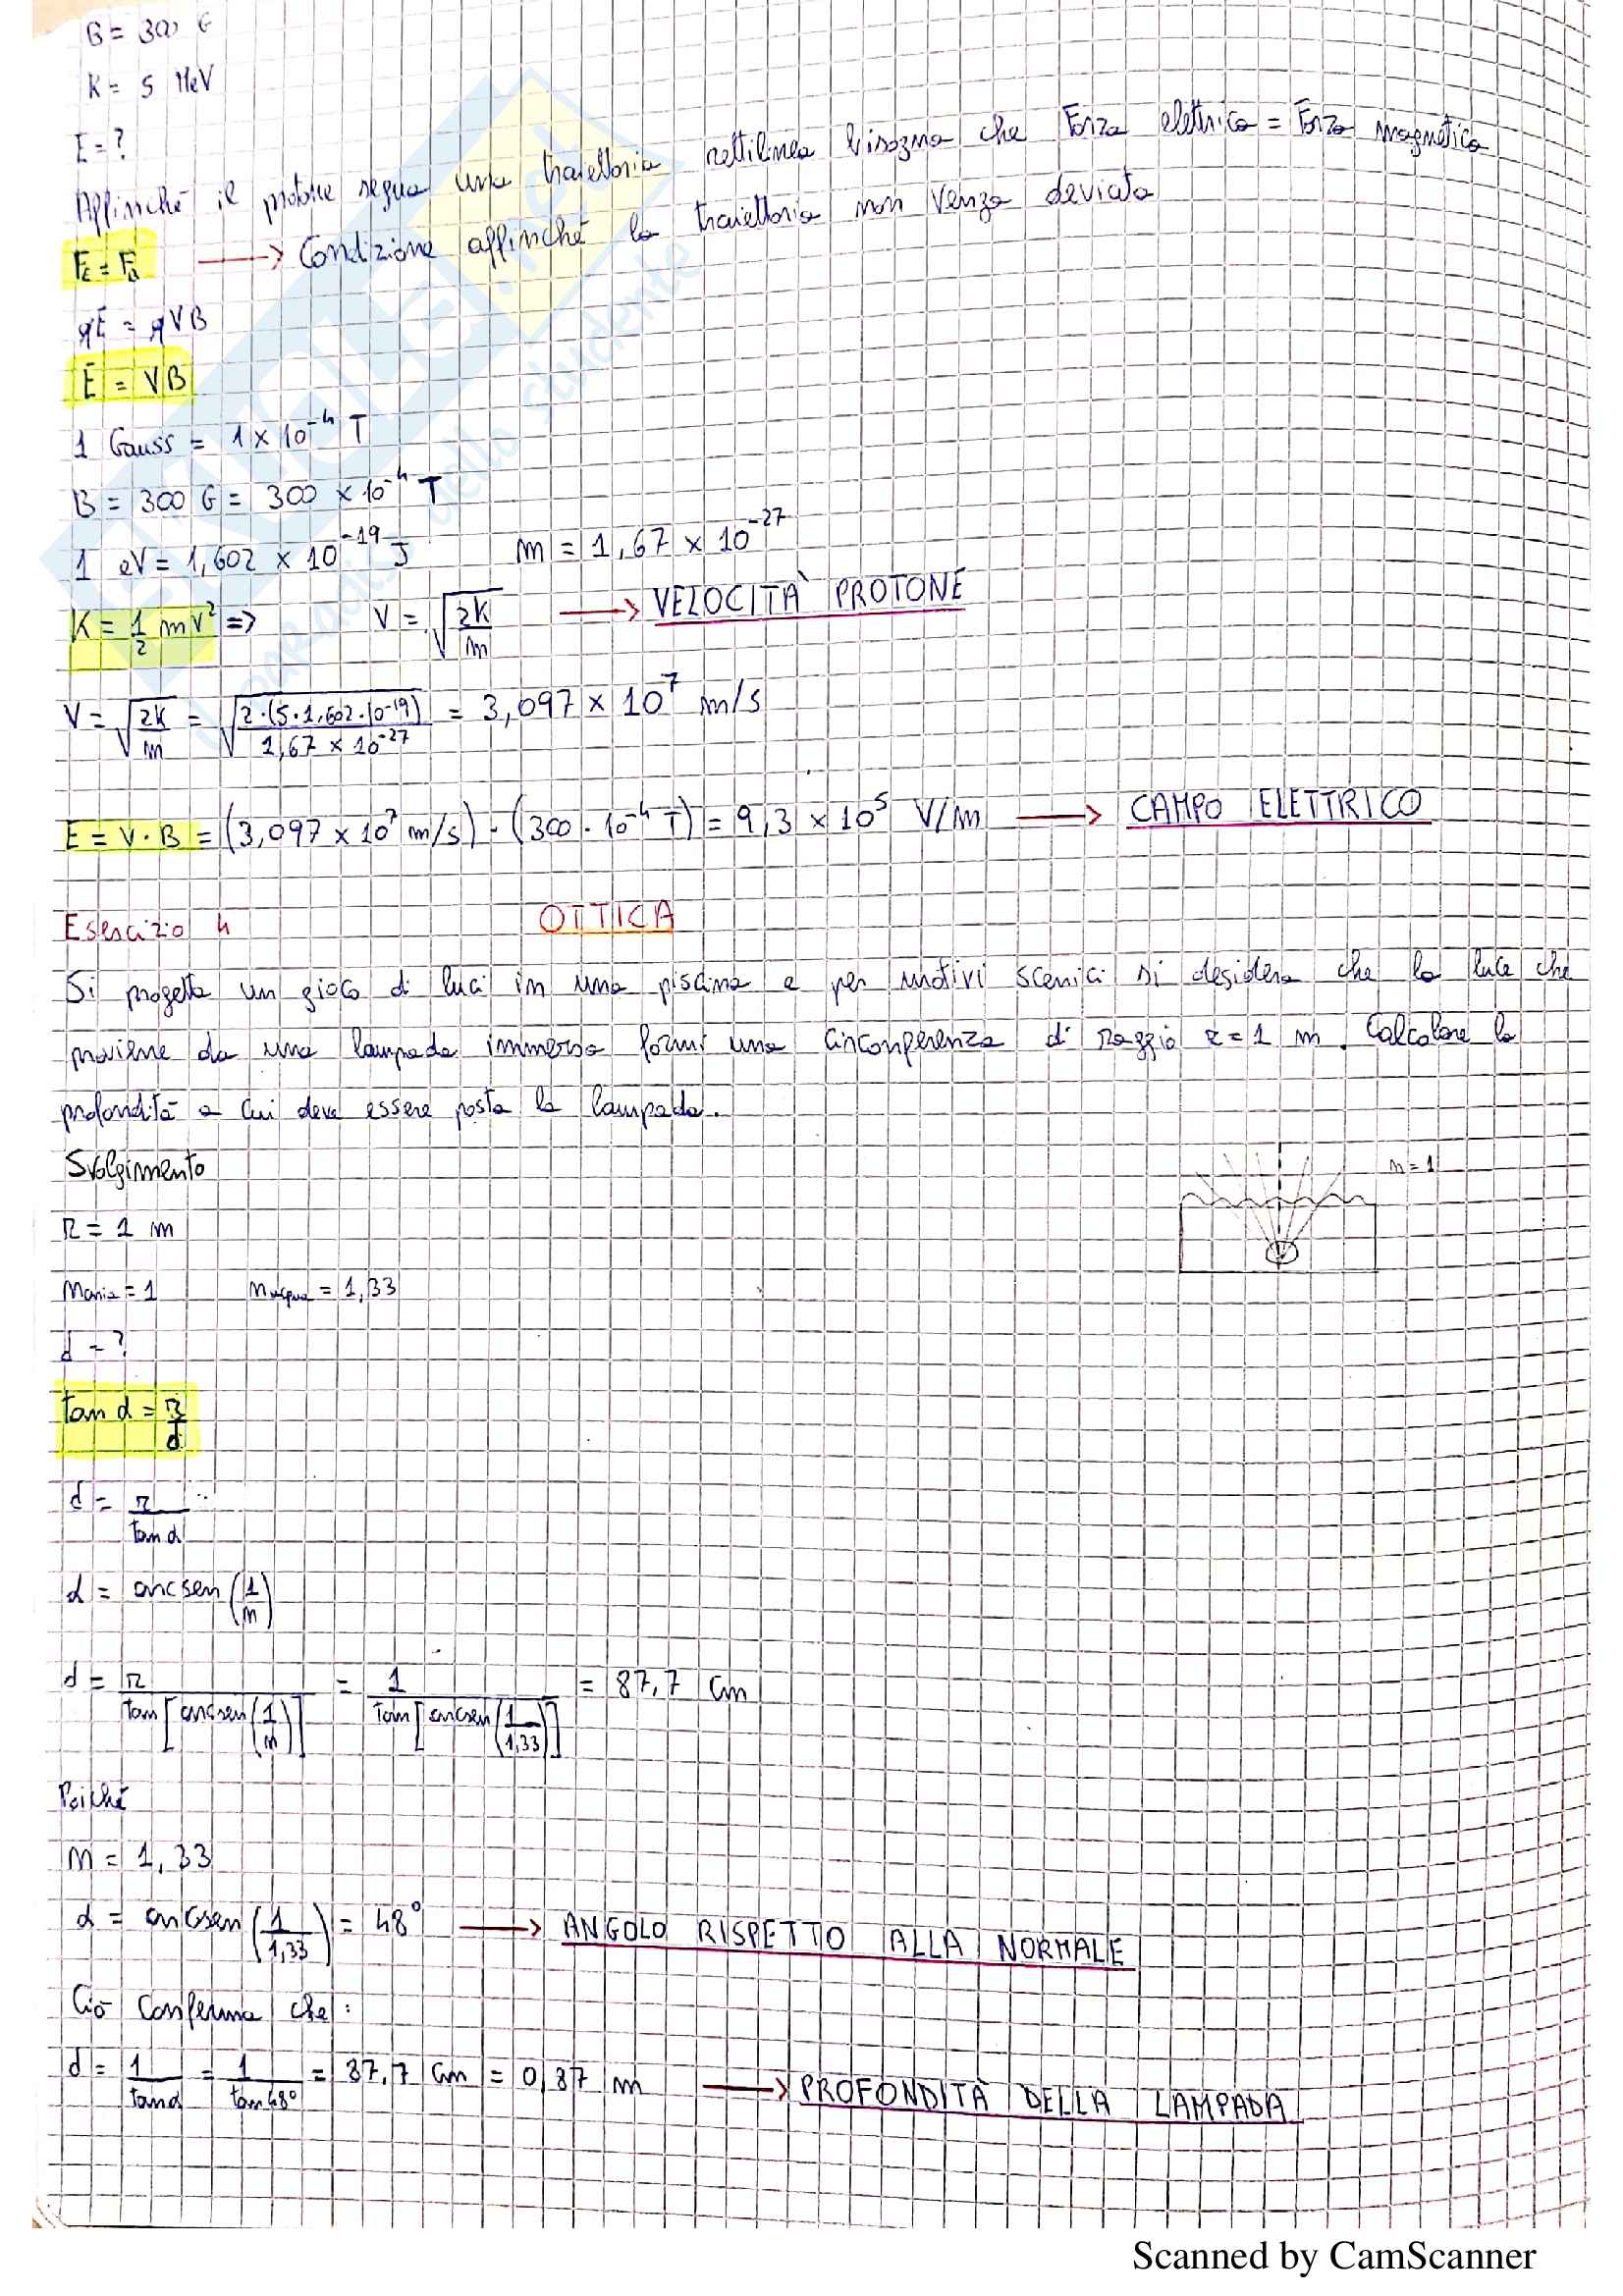 B = 300 G
K = 5 MeV
E = ?
Affinché il protone segua una traiettoria rettilinea bisogna che Forza elettrica = Forza magnetica
F_E = F_B → Condizione affinché la traiettoria non venga deviata
qE = qVB
E = VB
1 Gauss = 1 × 10⁻⁴ T
B = 300 G = 300 × 10⁻⁴ T
1 eV = 1,602 × 10⁻¹⁹ J m = 1,67 × 10⁻²⁷
K = 1/2 mV² => V = √(2K/m) → VELOCITÀ PROTONE
V = √(2K/m) = √(2·(5·1,602·10⁻¹⁹)/1,67 × 10⁻²⁷) = 3,097 × 10⁷ m/s
E = V · B = (3,097 × 10⁷ m/s) · (300 · 10⁻⁴ T) = 9,3 × 10⁵ V/m → CAMPO ELETTRICO
Esercizio 4 OTTICA
Si progetta un gioco di luci in una piscina e per motivi scenici si desidera che la luce che
proviene da una lampada immersa formi una circonferenza di raggio r = 1 m. Calcolare la
profondità a cui deve essere posta la lampada.
Svolgimento
n = 1
r = 1 m
n aria = 1 n acqua = 1,33
d = ?
tan α = r/d
d = r/tan α
α = arcsen (1/n)
d = r/tan[arcsen(1/n)] = 1/tan[arcsen(1/1,33)] = 87,7 cm
Poiché
n = 1,33
α = arcsen (1/1,33) = 48° → ANGOLO RISPETTO ALLA NORMALE
Ciò conferma che:
d = 1/tan α = 1/tan 48° = 87,7 cm = 0,87 m → PROFONDITÀ DELLA LAMPADA
Scanned by CamScanner